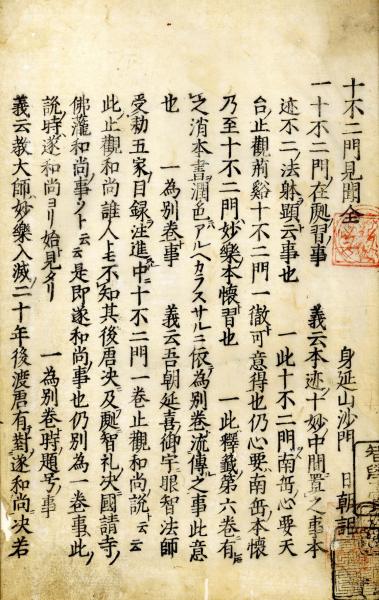 十不二門見聞全　　　身延山沙門　日朝記
一十不二門在處習事　　義云本迹十妙中間置之事本
迹不二法躰顕云事也　　一此十不二門南岳心要天
台止觀荊谿十不二門一徹可意得也仍心要南岳本懐
乃至十不二門妙樂本懐習也　　一此釋籤第六卷有
之消本書潤色アルヘカラスサルニ依為別卷流傳之事此意
也　　一為別卷事　　義云吾朝延喜御宇眼智法師
受勅五家目録注進中十不二門一卷止觀和尚説云云
此止觀和尚誰人トモ不知其後唐决及處智礼决國請寺
佛瀧和尚事ソト云云是即遂和尚事也仍別為一卷事此
説時遂和尚ヨリ始見タリ　　一為別卷時題号事
義云教大師妙樂入滅二十年後渡唐有對遂和尚决若